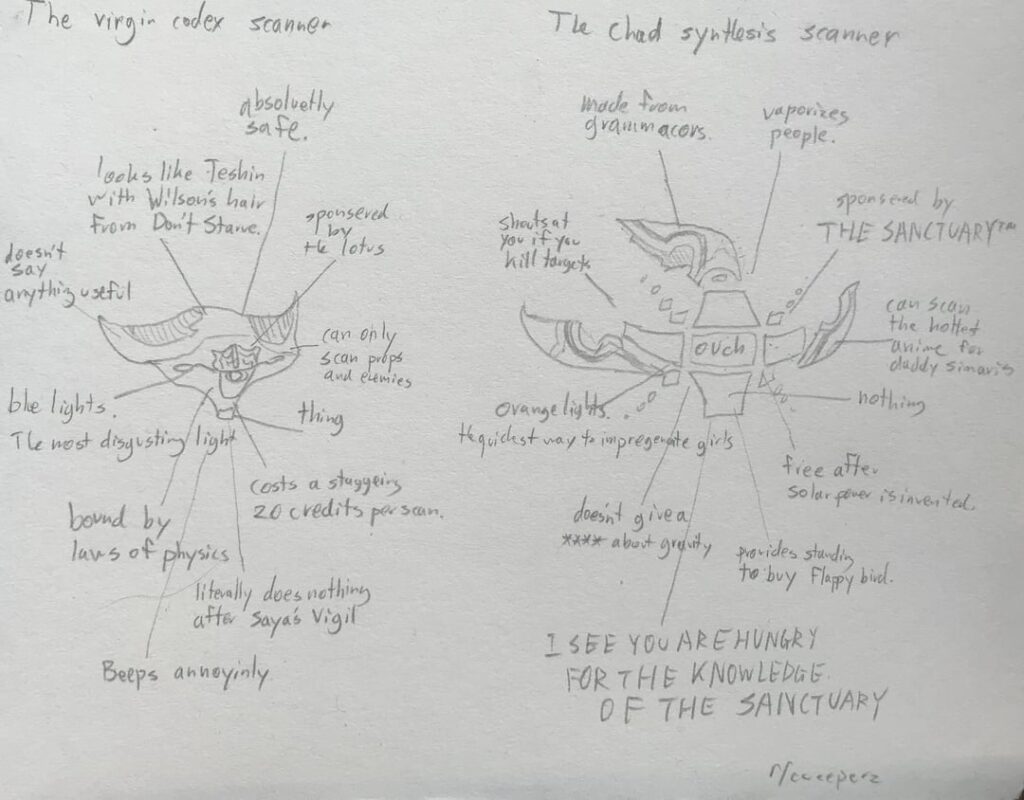 The virgin codex scanner
absoluetly
safe.
looks like Teshin
with Wilson's hair
from Don't Starve.
sponsered
by
the lotus
doesn't
say
anything useful
can only
scan props
and enemies
blue lights.
The most disgusting light
thing
costs a staggering
20 credits per scan.
bound by
laws of physics
literally does nothing
after Saya's Vigil
Beeps annoyinly
The Chad synthesis scanner
made from
grammacors.
vaporizes
people.
shouts at
you if you
kill targets
sponsered by
THE SANCTUARY™
can scan
the hottest
anime for
daddy simaris
ouch
nothing
orange lights.
the quickest way to impregenate girls
free after
solar power is invented.
doesn't give a
**** about gravity
provides standing
to buy Flappy bird.
I SEE YOU ARE HUNGRY
FOR THE KNOWLEDGE
OF THE SANCTUARY